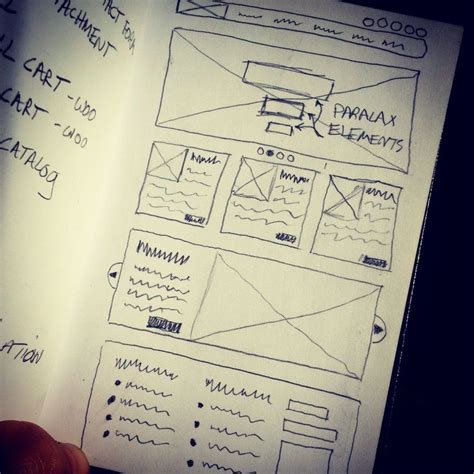 TACT FORM
TACHMENT
LL CART - WOO
CART - WOO
CATALOG
ATION
PARALAX
ELEMENTS